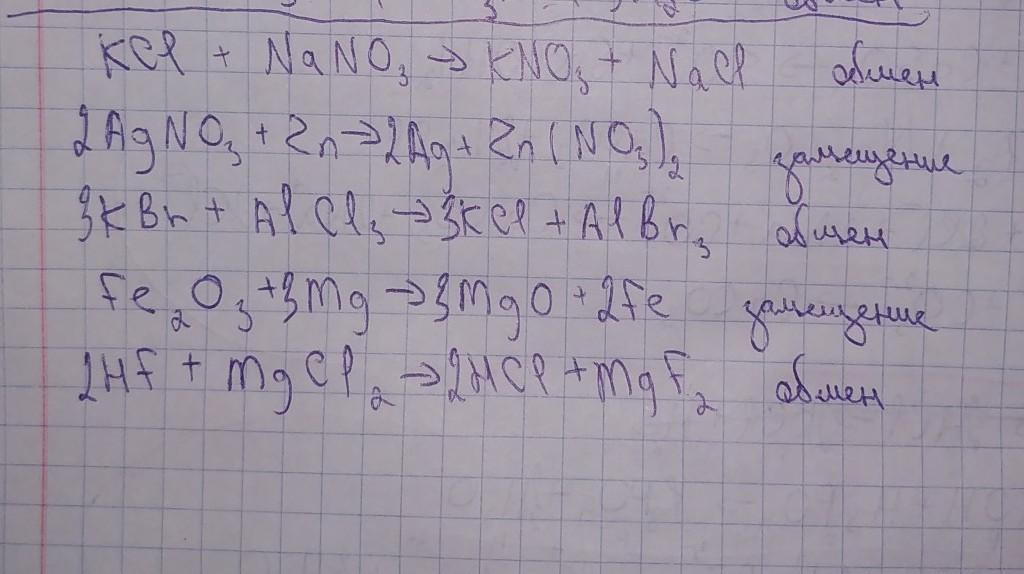 KCl + NaNO₃ → KNO₃ + NaCl обмен
2AgNO₃ + Zn → 2Ag + Zn(NO₃)₂ замещение
3KBr + AlCl₃ → 3KCl + AlBr₃ обмен
Fe₂O₃ + 3Mg → 3MgO + 2Fe замещение
2HF + MgCl₂ → 2HCl + MgF₂ обмен